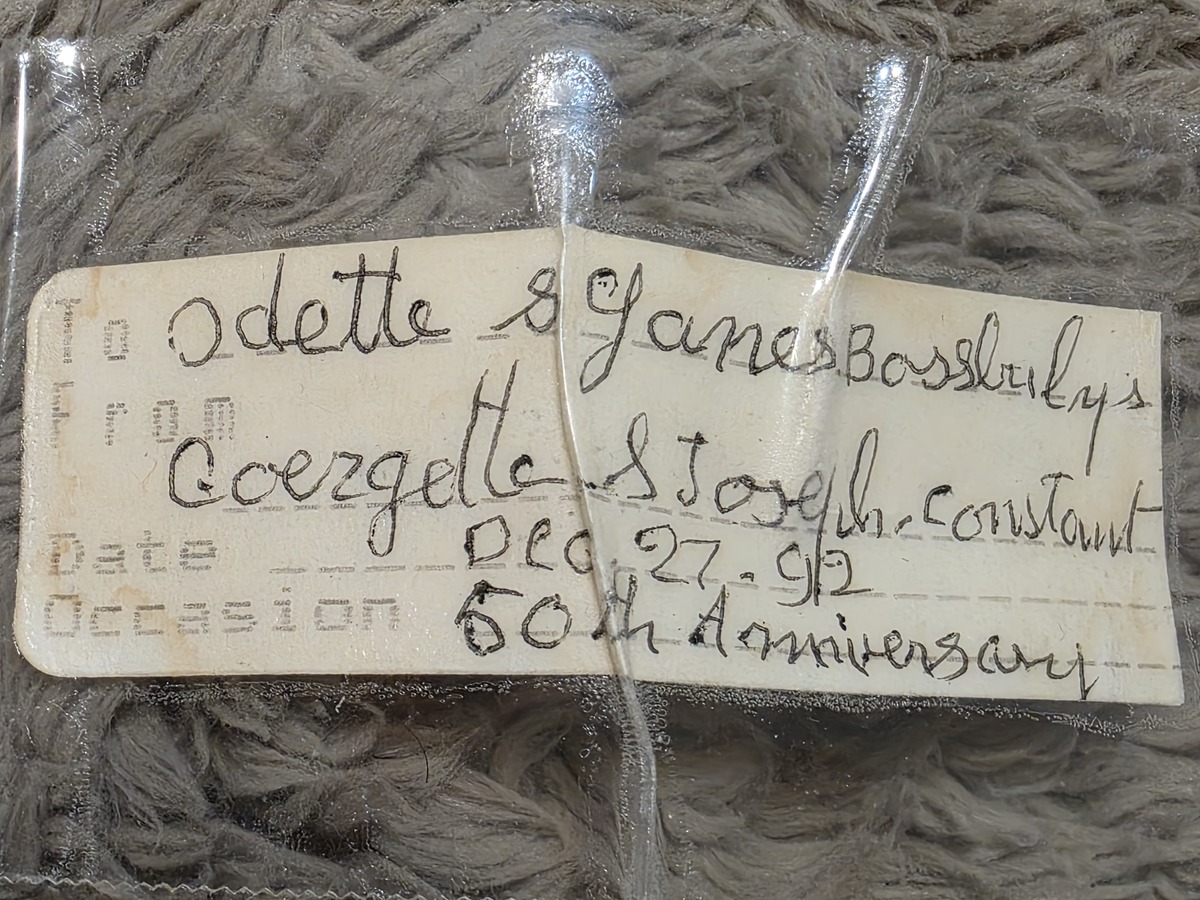 Odette & James Bassbilys
Goergette & Joseph. Constant
Date Dec. 27. 92
Occasion 50th Anniversary